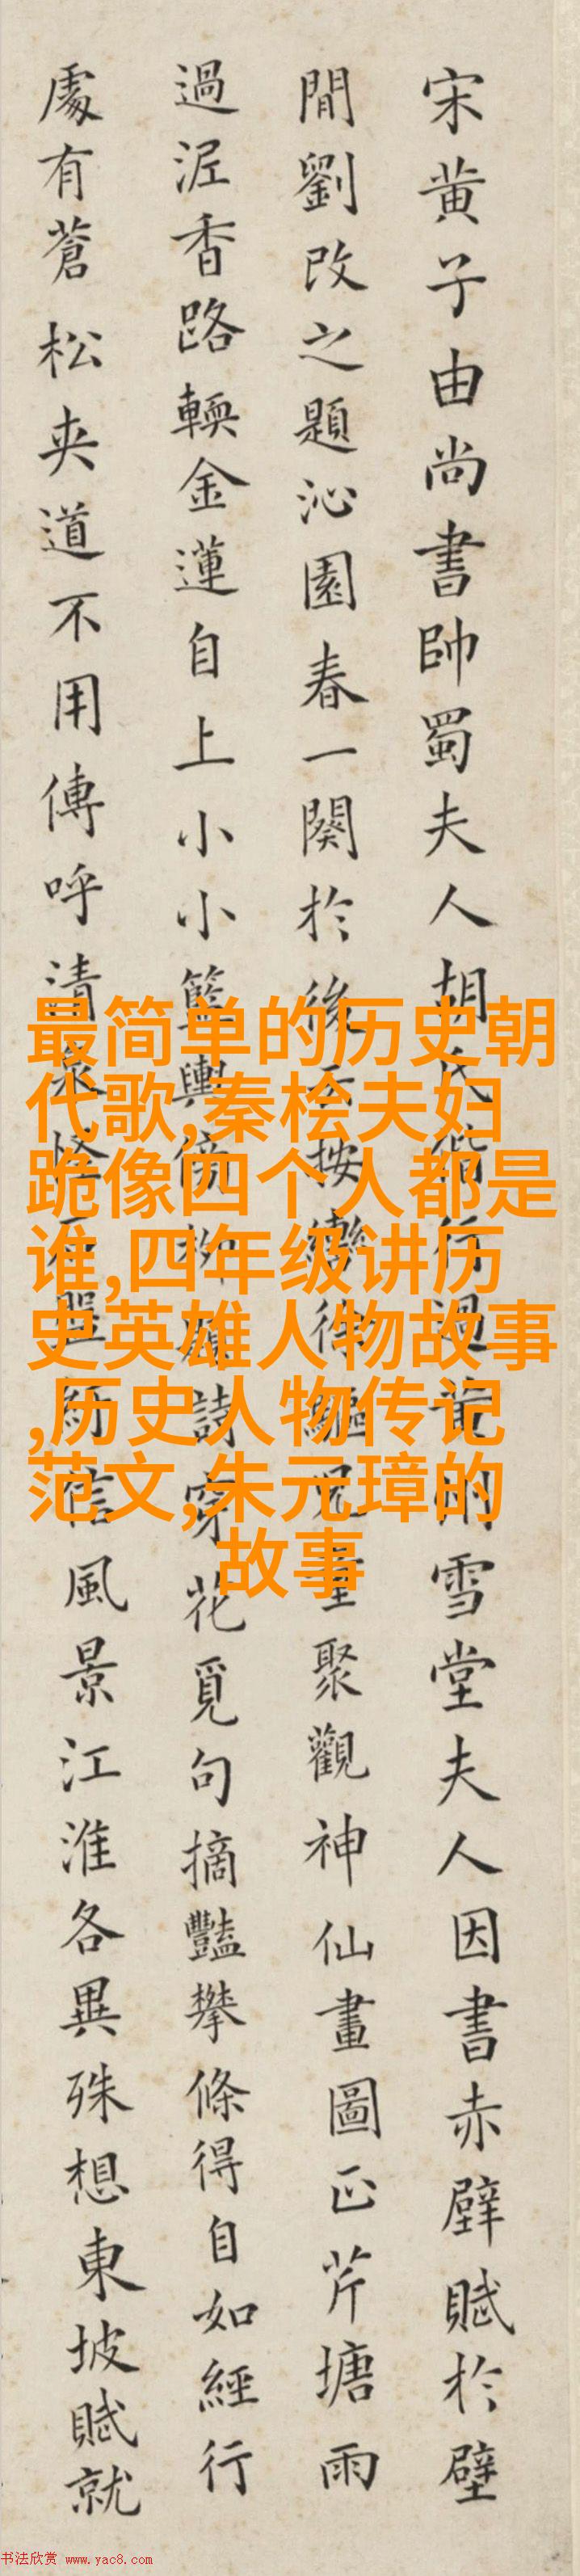 宋黄子由尚書帥蜀夫人胡氏偕行過黄州雪堂夫人因書赤壁賦於壁
間劉改之題沁園春一闋於後云按轡徐驅兒童聚觀神仙畫圖正芹塘雨
過泥香路輭金蓮自上小小籃輿傍柳題詩穿花覓句摘豔攀條得自如經行
處有蒼松夾道不用傳呼清泉怪石盤紆信風景江淮各異殊想東坡賦就
最简单的历史朝
代歌,秦桧夫妇
跪像四个人都是
谁,四年级讲历
史英雄人物故事
,历史人物传记
范文,朱元璋的
故事
书法欣赏 www.yac8.com